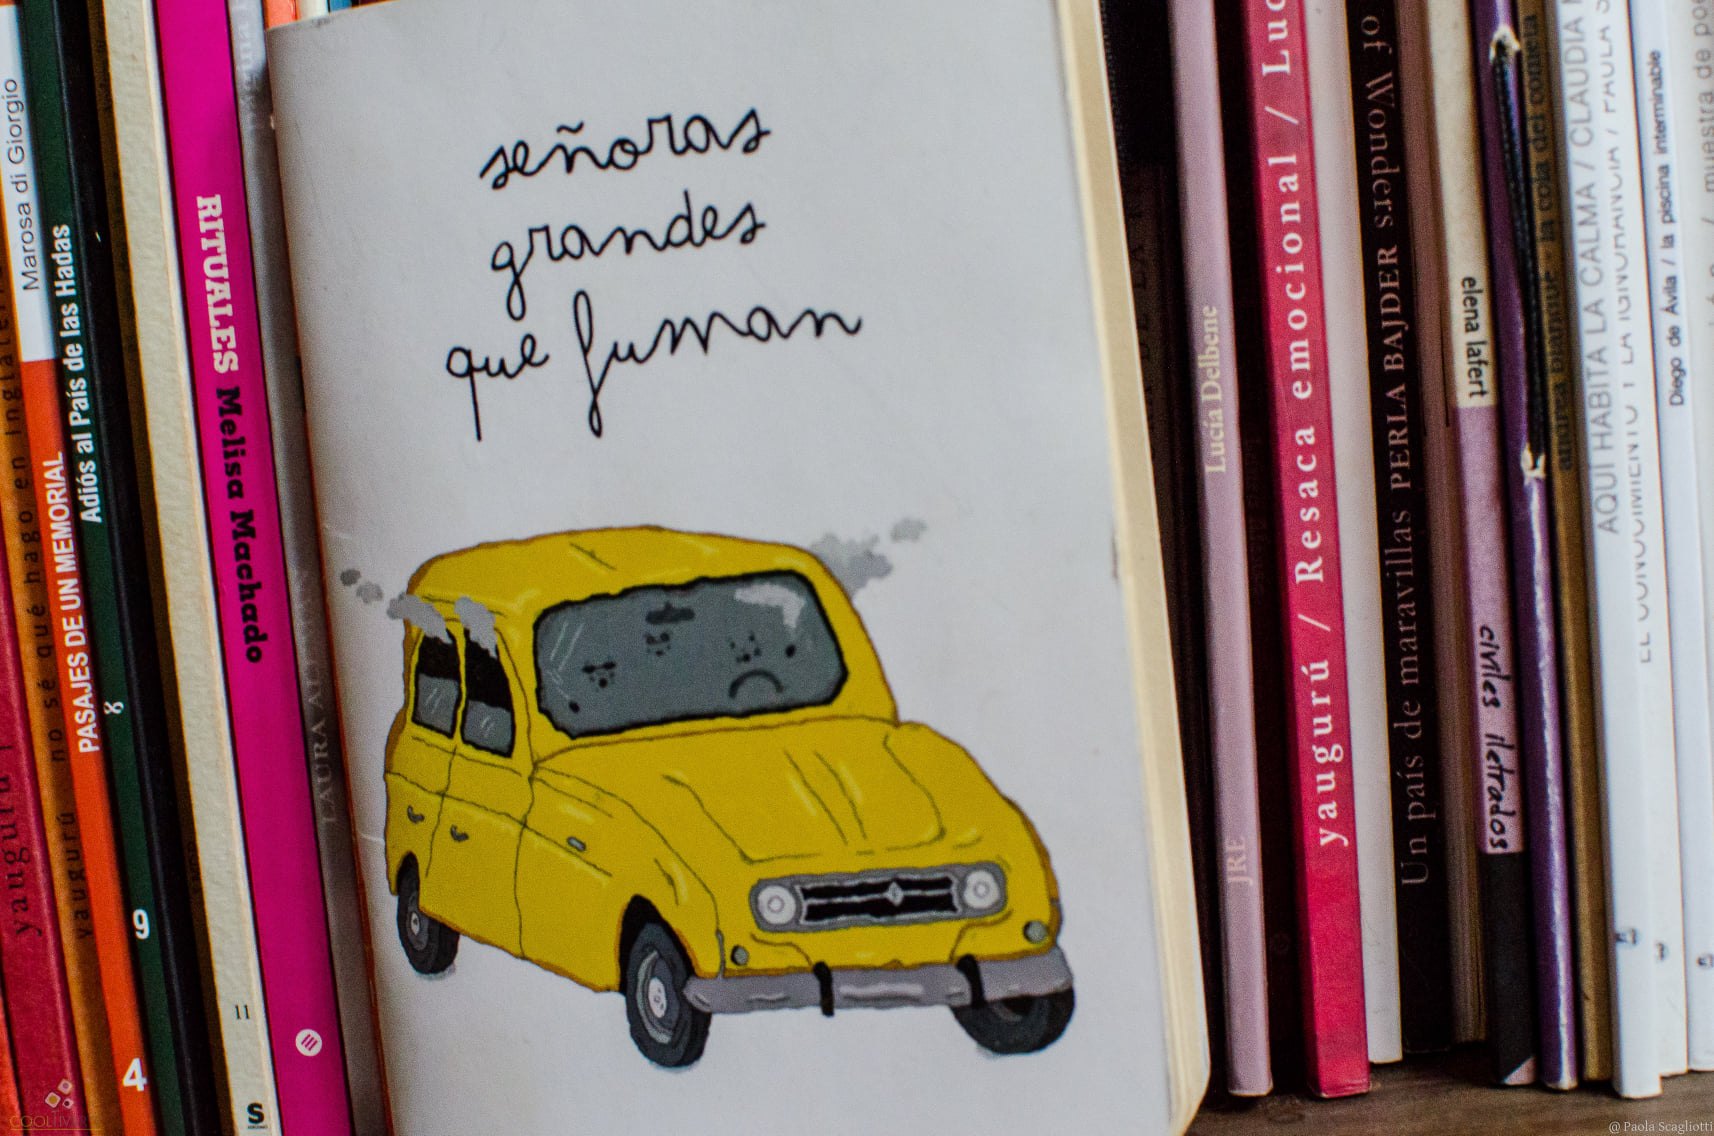 señoras
grandes
que fuman
Marosa di Giorgio
PASAJES DE UN MEMORIAL
Adiós al País de las Hadas
no sé qué hago en
yaugurú
yaugurú
8
9
4
11
S
RITUALES Melisa Machado
Lucía Delbene
JRE
yaugurú / Resaca emocional /
Un país de maravillas PERLA BAJDER
of Wonders
elena lafert
civiles iletrados
la cola del cometa
AQUÍ HABITA LA CALMA / CLAUDIA
EL CONOCIMIENTO Y LA IGNORANCIA / PAULA
Diego de Ávila / la piscina interminable
/ muestra de
@ Paola Scagliotti